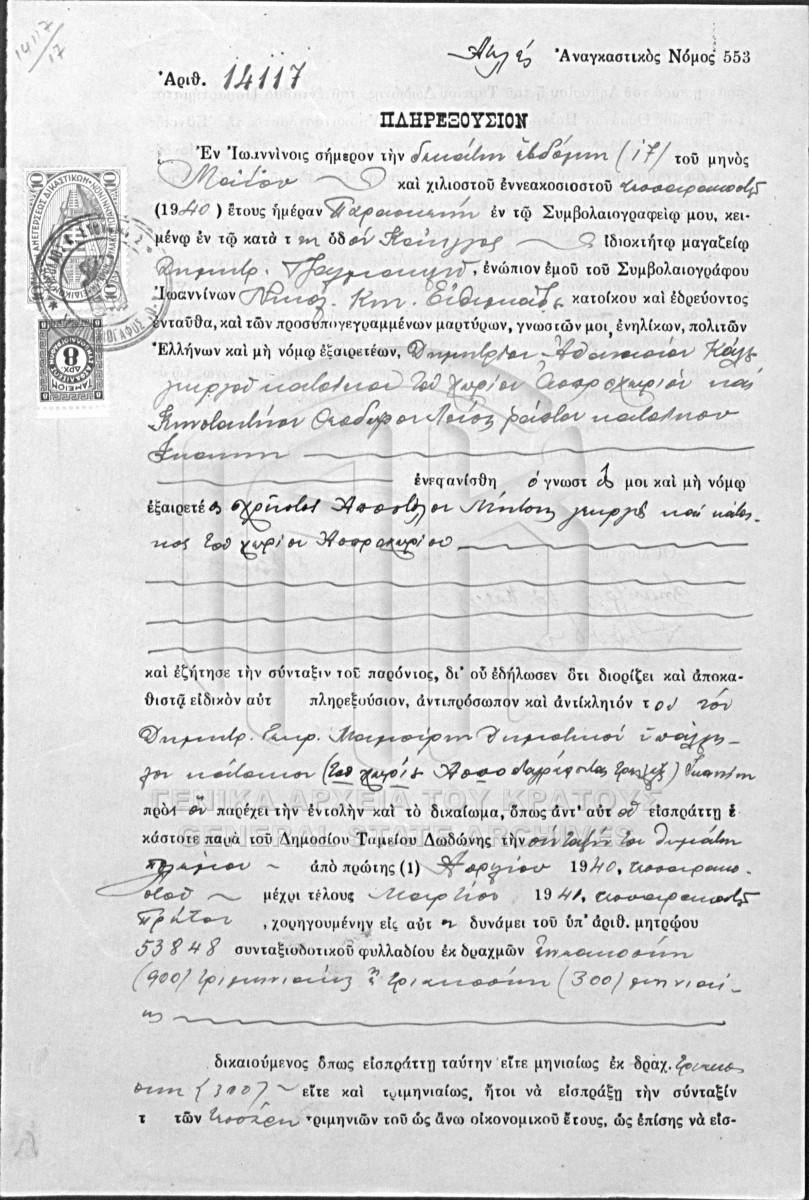 14117
17
Ἀτελές Ἀναγκαστικὸς Νόμος 553
Ἀριθ. 14117
ΠΛΗΡΕΞΟΥΣΙΟΝ
Ἐν Ἰωαννίνοις σήμερον τὴν δεκάτην ἑβδόμην (17) τοῦ μηνὸς
Μαΐου καὶ χιλιοστοῦ ἐννεακοσιοστοῦ τεσσαρακοστοῦ
(1940) ἔτους ἡμέραν Παρασκευὴν ἐν τῷ Συμβολαιογραφείῳ μου, κει-
μένῳ ἐν τῷ κατὰ τὴν ὁδὸν ἰδιοκτήτῳ μαγαζείῳ
Δημητρ. , ἐνώπιον ἐμοῦ τοῦ Συμβολαιογράφου
Ἰωαννίνων Νικολ. Κων. κατοίκου καὶ ἑδρεύοντος
ἐνταῦθα, καὶ τῶν προσυπογεγραμμένων μαρτύρων, γνωστῶν μοι, ἐνηλίκων, πολιτῶν
Ἑλλήνων καὶ μὴ νόμῳ ἐξαιρετέων, Δημητρίου Ἀθανασίου
γεωργοῦ κατοίκου τοῦ χωρίου Ἀσπροχωρίου καὶ
Κωνσταντίνου Θεοδώρου ράπτου κατοίκου
ἐνεφανίσθη ὁ γνωστός μοι καὶ μὴ νόμῳ
ἐξαιρετέος Χρῆστος Ἀποστόλου γεωργὸς καὶ κάτοι-
κος τοῦ χωρίου Ἀσπροχωρίου
καὶ ἐζήτησε τὴν σύνταξιν τοῦ παρόντος, δι' οὗ ἐδήλωσεν ὅτι διορίζει καὶ ἀποκα-
θιστᾷ εἰδικὸν αὑτ πληρεξούσιον, ἀντιπρόσωπον καὶ ἀντίκλητόν του τὸν
Δημητρ. δημοτικοῦ ὑπάλλη-
λον κάτοικον
πρὸς ὃν παρέχει τὴν ἐντολὴν καὶ τὸ δικαίωμα, ὅπως ἀντ' αὐτοῦ εἰσπράττῃ ἑ
κάστοτε παρὰ τοῦ Δημοσίου Ταμείου Δωδώνης τὴν σύνταξίν του
ἀπὸ πρώτης (1) Ἀπριλίου 1940, τεσσαρακο-
στοῦ μέχρι τέλους Μαρτίου 1941, τεσσαρακοστοῦ
πρώτου , χορηγουμένην εἰς αὐτὸν δυνάμει τοῦ ὑπ' ἀριθ. μητρώου
53848 συνταξιοδοτικοῦ φυλλαδίου ἐκ δραχμῶν ἐννακοσίων
(900) τριμηνιαίως ἢ τριακοσίων (300) μηνιαί-
ως
δικαιούμενος ὅπως εἰσπράττῃ ταύτην εἴτε μηνιαίως ἐκ δραχ. τριακο-
σίων (300) εἴτε καὶ τριμηνιαίως, ἤτοι νὰ εἰσπράξῃ τὴν σύνταξίν
τ τῶν τεσσάρων τριμηνιῶν τοῦ ὡς ἄνω οἰκονομικοῦ ἔτους, ὡς ἐπίσης νὰ εἰσ-
ΓΕΝΙΚΑ ΑΡΧΕΙΑ ΤΟΥ ΚΡΑΤΟΥΣ
GENERAL STATE ARCHIVES